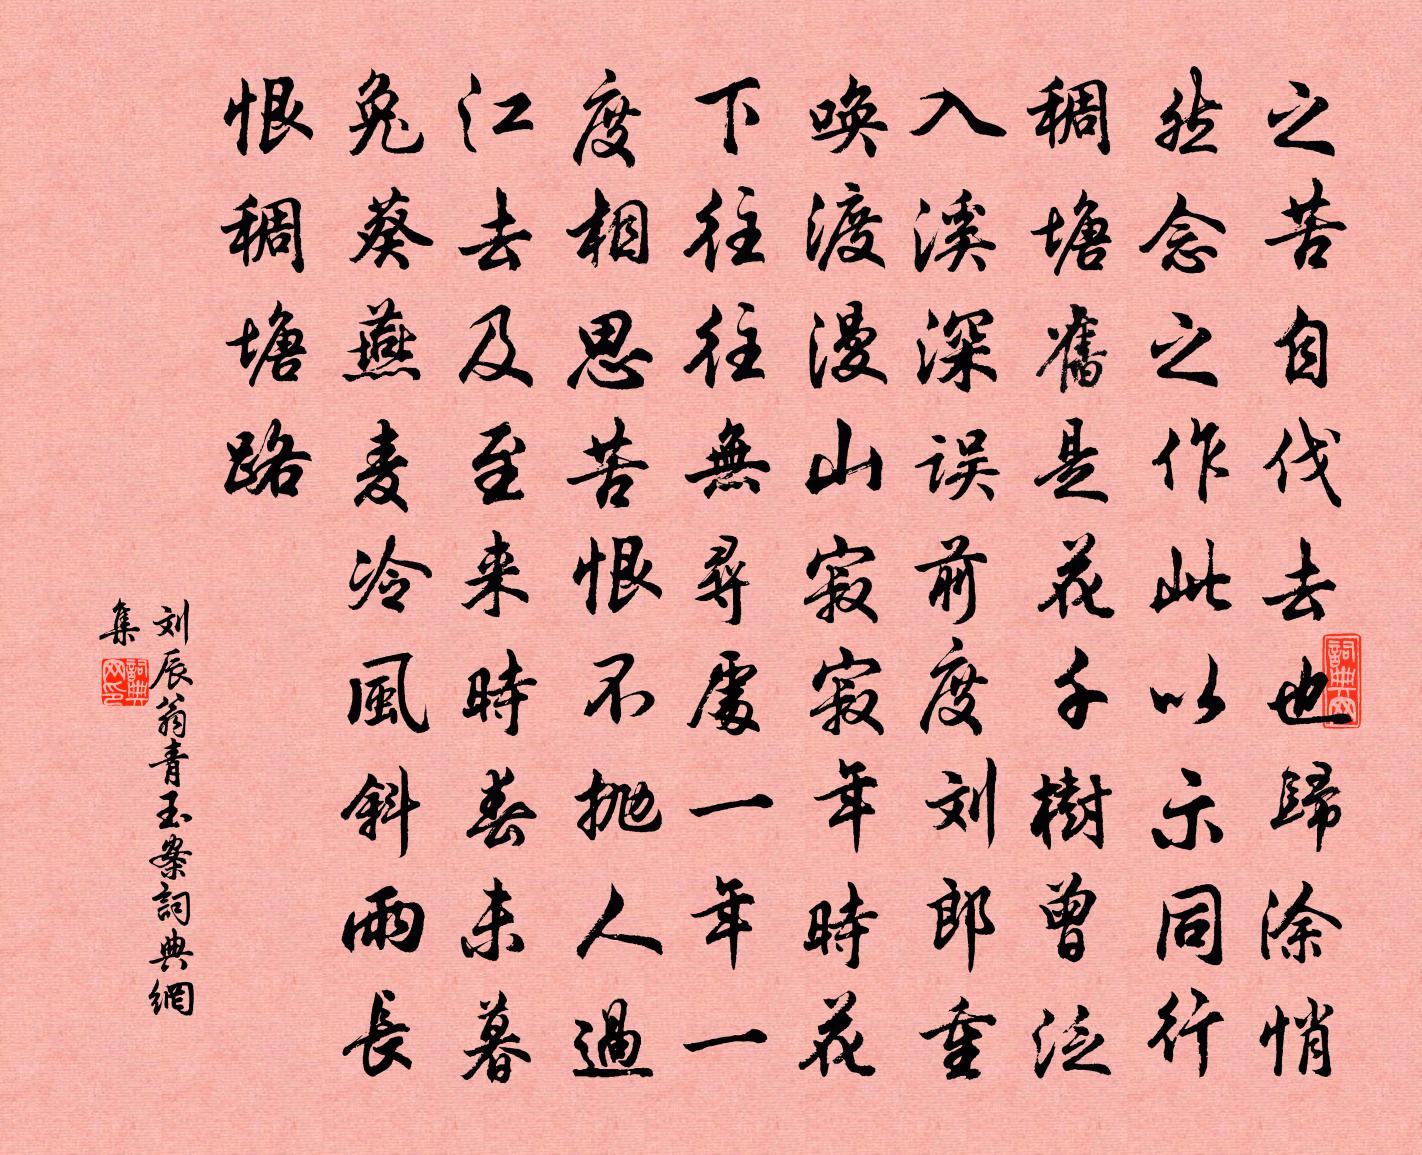 之苦自伐去也歸涂悄
然念之作此以示同行
稠塘舊是花千樹曾泛
入溪深误前度刘郎重
唤渡漫山寂寂年時花
下往往無尋處一年一
度相思苦恨不抛人過
江去及至来時春未暮
兔葵燕麦冷風斜雨長
恨稠塘路
刘辰翁青玉案詞典網
集
詞典网
詞典网印